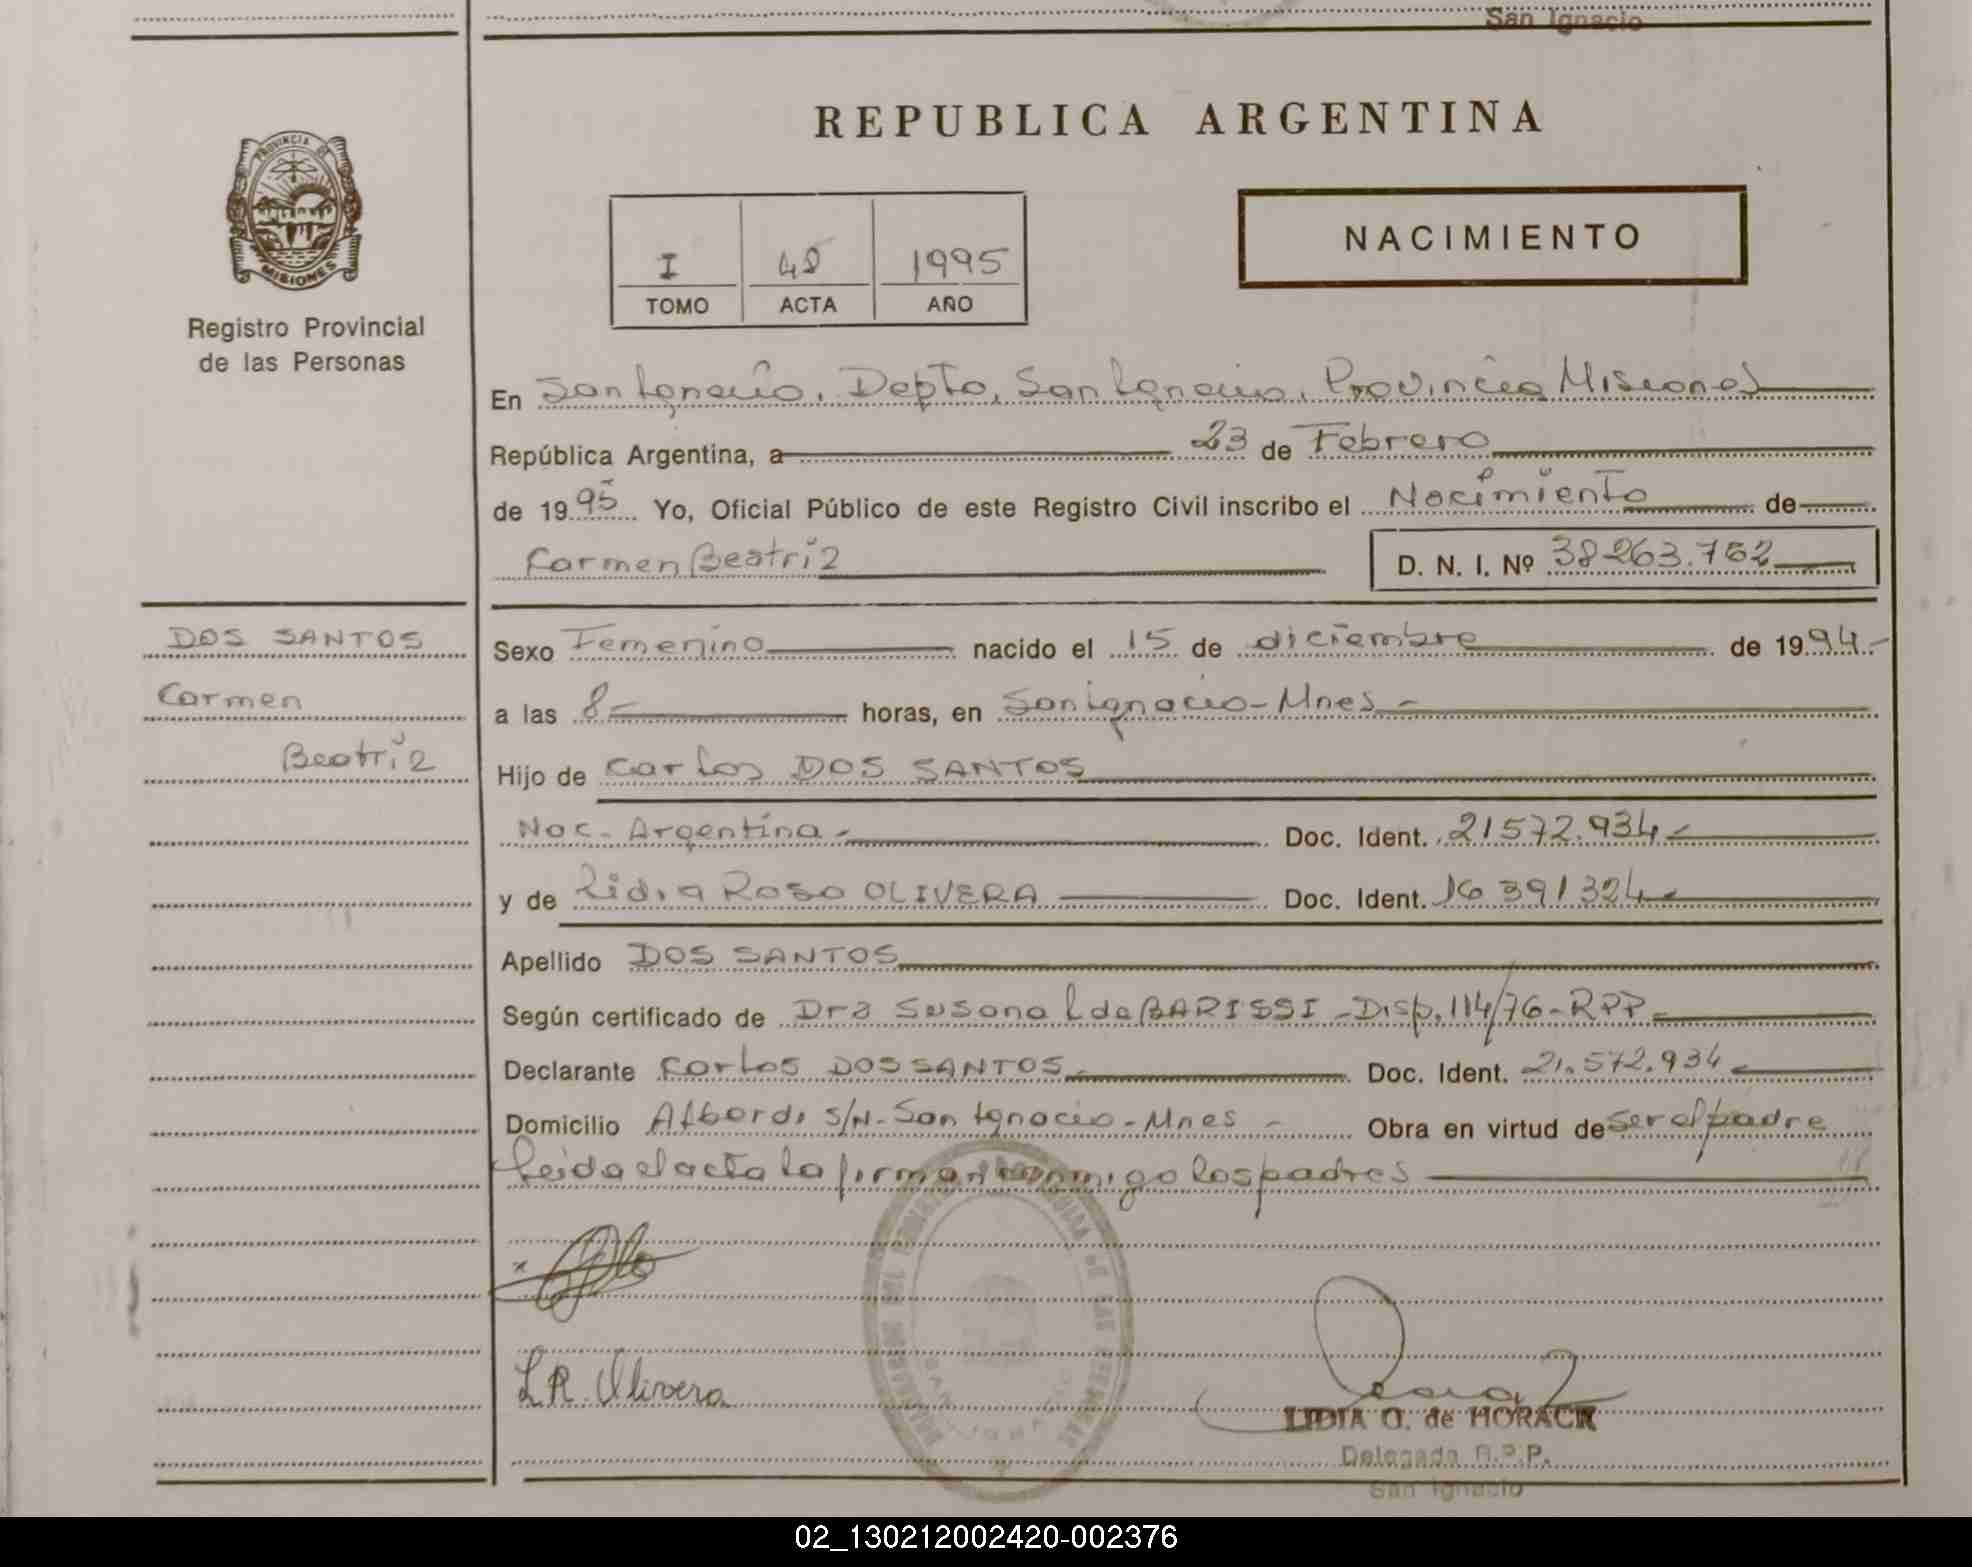 San Ignacio
REPUBLICA ARGENTINA
PROVINCIA DE
MISIONES
Registro Provincial
de las Personas
I 48 1995
TOMO ACTA AÑO
NACIMIENTO
En San Ignacio, Depto, San Ignacio, Provincia Misiones
República Argentina, a 23 de Febrero
de 1995 Yo, Oficial Público de este Registro Civil inscribo el Nacimiento de
Carmen Beatriz D. N. I. Nº 38263.762
DOS SANTOS
Carmen
Beatriz
Sexo Femenino nacido el 15 de diciembre de 1994-
a las 8- horas, en San Ignacio-Mnes-
Hijo de Carlos DOS SANTOS
Nac. Argentina- Doc. Ident. 21572.934-
y de Lidia Rosa OLIVERA Doc. Ident. 16391324-
Apellido DOS SANTOS
Según certificado de Dra Susana L de BARISSI -Disp. 114/76-RPP-
Declarante Carlos DOS SANTOS- Doc. Ident. 21.572.934-
Domicilio Alberdi S/N-San Ignacio-Mnes- Obra en virtud de ser el padre
leida el acta la firman conmigo los padres
x
L.R. Olivera
LIDIA O. de HORACK
Delegada R.P.P.
San Ignacio
02_130212002420-002376